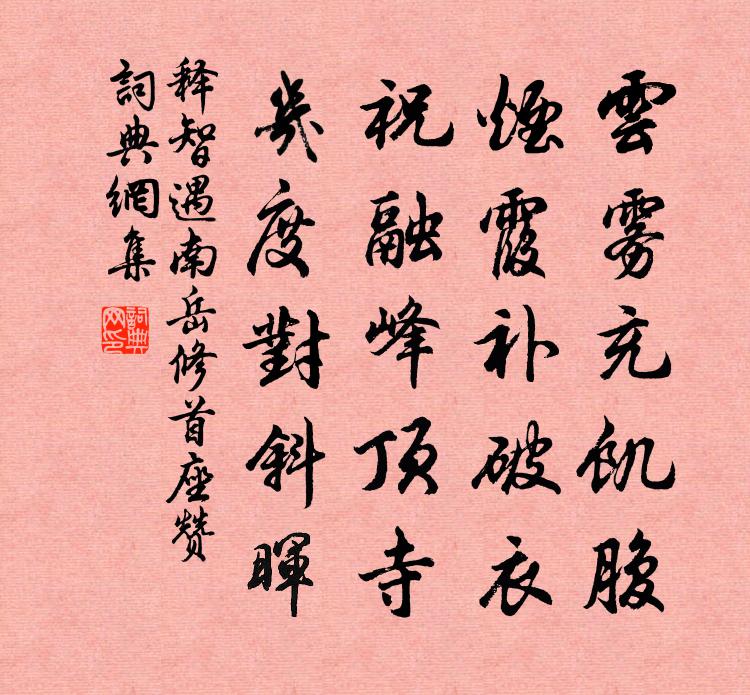 雲雾充飢腹
煙霞补破衣
祝融峰顶寺
幾度對斜暉
释智遇南岳修首座贊
詞典網集
詞典网印